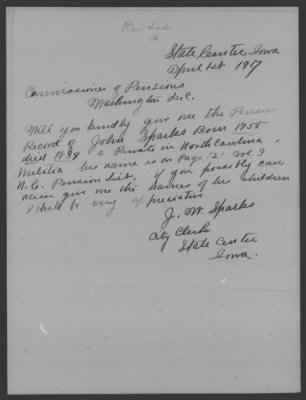 Rev Sol
State Center, Iowa
April 1st 1917
Commissioner of Pensions
Washington D.C.
Will you kindly give me the Pension
Record of John Sparks Born 1755
died 1839 a Private in North Carolina
Militia his name is on Page 2 Vol 3
N.C. Pension List. if you possibly can
please give me the names of his children
I shall be very appreciative
J. W. Sparks
City Clerk
State Center
Iowa.